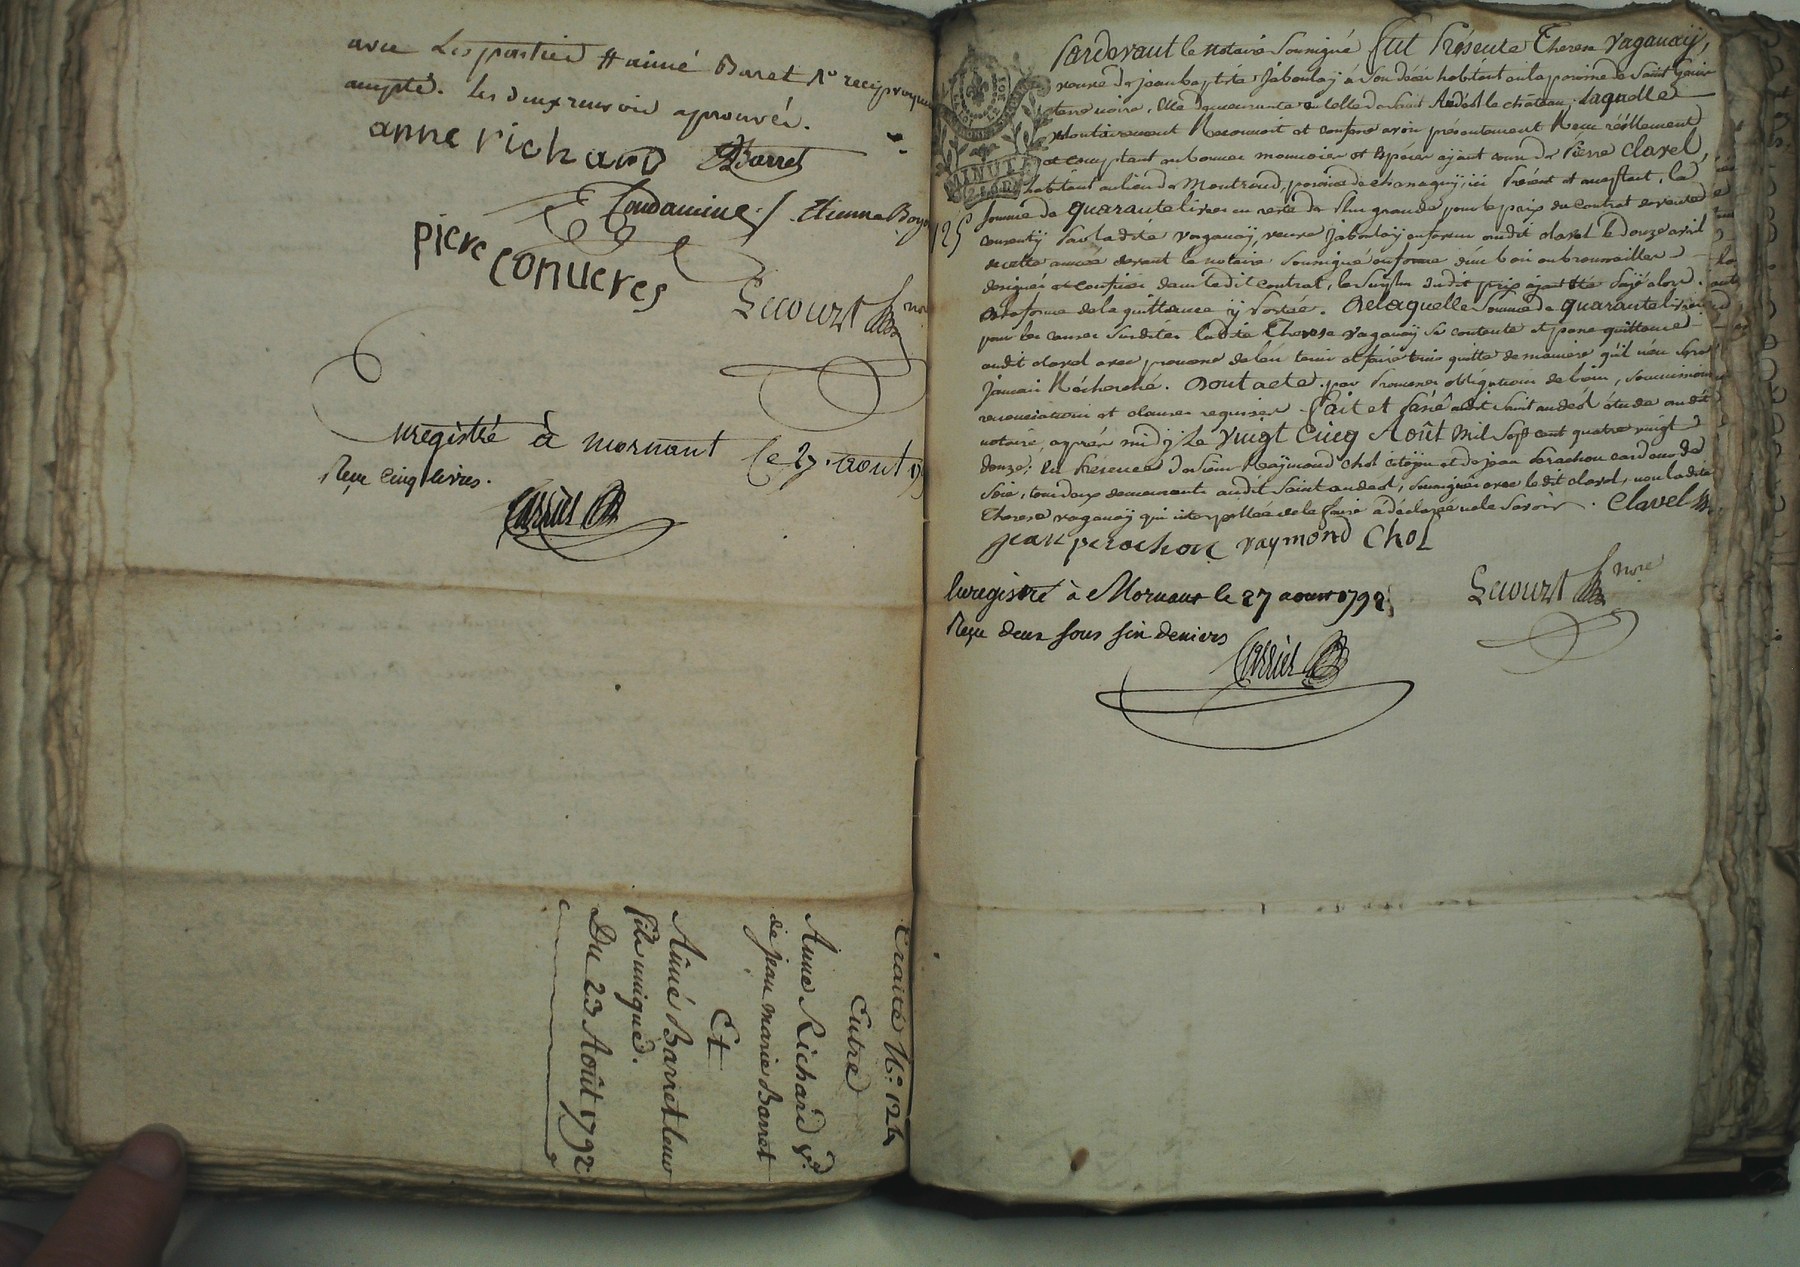 avec les parties # aimé Baret /. reciproquem
accepté. les deux renvois aprouvés.
anne richard Barret
Condamine / Etienne Boy
piere converes
Lecourt nore
enregistré à mornant le 27. aout 17
Reçu cinq livres.
Carrier
Traité N.° 124
Entre
Anne Richard Ve.
de jean marie Barret
Et
Aimé Barret leur
fils unique.
Du 23 Août 1792
MINUTE
125
Pardevant le Notaire soussigné fut Présente Therese vaganaÿ,
veuve de jean baptiste jaboulaÿ à son décès habitant en la paroisse de Saint
terre noire, Elle demeurante en celle de Saint Andéol le château, Laquelle
volontairement Reconnoit et confesse avoir présentement Recu réellement
et comptant en bonnes monnoies et Espèces ayant cours de Pierre Clavel,
habitant au lieu de Montrond, paroisse de chassagny, ici Présent et acceptant, la
somme de quarante livres en reste de plus grande pour le prix du contrat de vente
consenty par ladite vaganaÿ, veuve jaboulaÿ en faveur dudit clavel le Douze avril
de cette année devant le notaire soussigné en forme d'un bois ou broussailles
designés et confinés dans ledit contrat, le surplus dudit prix ayant été payé alors
de laquelle somme de quarante livres
pour les causes susdites ladite Therese vaganaÿ se contente et passe quittance
audit clavel avec promesse de l'en tenir et faire tenir quitte de maniere qu'il n'en sera
jamais Récherché. Dont acte. par Promesses obligations de biens, soumissions
renonciations et clauses requises. Fait et passé audit Saint andeol étude dudit
notaire, après midÿ Le vingt Cinq Août Mil sept cent quatre vingt
douze; En Présence de sieur Raÿmond Chol citoÿen et de jean Perachon cardeur de
soie, tous deux demeurants audit Saint andeol, soussignés avec ledit clavel, non ladite
Therese vaganaÿ qui interpellée de le faire a déclaré ne le savoir. Clavel
jean perochon raymond Chol
Enregistré à Mornant le 27 aoust 1792
Reçu deux sous six deniers
Lecourt nore
Carrier